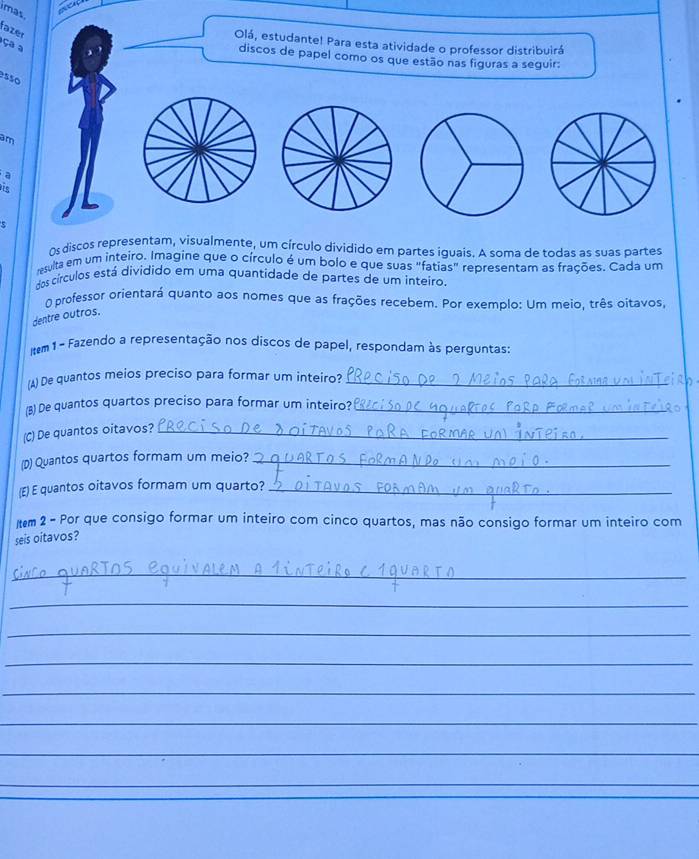 imas,
fazer
ça a
esso
am
a
is
s
Olá, estudante! Para esta atividade o professor distribuirá
discos de papel como os que estão nas figuras a seguir:
Os discos representam, visualmente, um círculo dividido em partes iguais. A soma de todas as suas partes
resulta em um inteiro. Imagine que o círculo é um bolo e que suas "fatias" representam as frações. Cada um
dos círculos está dividido em uma quantidade de partes de um inteiro.
O professor orientará quanto aos nomes que as frações recebem. Por exemplo: Um meio, três oitavos,
dentre outros.
Item 1 - Fazendo a representação nos discos de papel, respondam às perguntas:
(A) De quantos meios preciso para formar um inteiro? PReciso De 2 Meios PARA FoRMAR UM iNTeiRo
(B) De quantos quartos preciso para formar um inteiro? PReciso De 4 quARTos PARA FoRMAR um inTeiRo
(C) De quantos oitavos? PReciso De 8 oiTAVOS PARA FORMAR UM iNTeiRo.
(D) Quantos quartos formam um meio? 2 QUARTOS FoRMANDo um meio.
(E) E quantos oitavos formam um quarto? 2 OiTAVOS FORMAM um quARTo.
Item 2 - Por que consigo formar um inteiro com cinco quartos, mas não consigo formar um inteiro com
seis oitavos?
CiNco quARTOS equiVALeM A 1 iNTeiRo e 1 quARTO